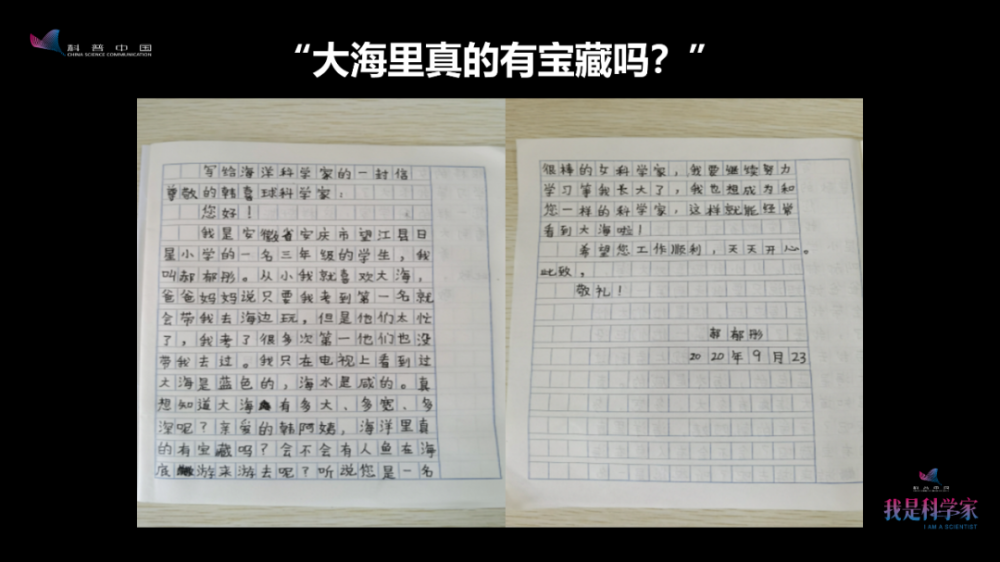 科普中国
CHINA SCIENCE COMMUNICATION
“大海里真的有宝藏吗？”
写给海洋科学家的一封信
尊敬的韩喜球科学家：
您好！
我是安徽省安庆市望江县日
星小学的一名三年级的学生，我
叫郝郁彤。从小我就喜欢大海，
爸爸妈妈说只要我考到第一名就
会带我去海边玩，但是他们太忙
了，我考了很多次第一他们也没
带我去过。我只在电视上看到过
大海是蓝色的，海水是咸的。真
想知道大海有多大、多宽、多
涅呢？亲爱的韩阿姨，海洋里真
的有宝藏吗？会不会有人鱼在海
底游来游去呢？听说您是一名
很棒的女科学家，我要继续努力
学习等我长大了，我也想成为和
您一样的科学家，这样就能经常
看到大海啦！
希望您工作顺利，天天开心。
此致，
敬礼！
郝郁彤
2020年9月23
科普中国
我是科学家
I AM A SCIENTIST